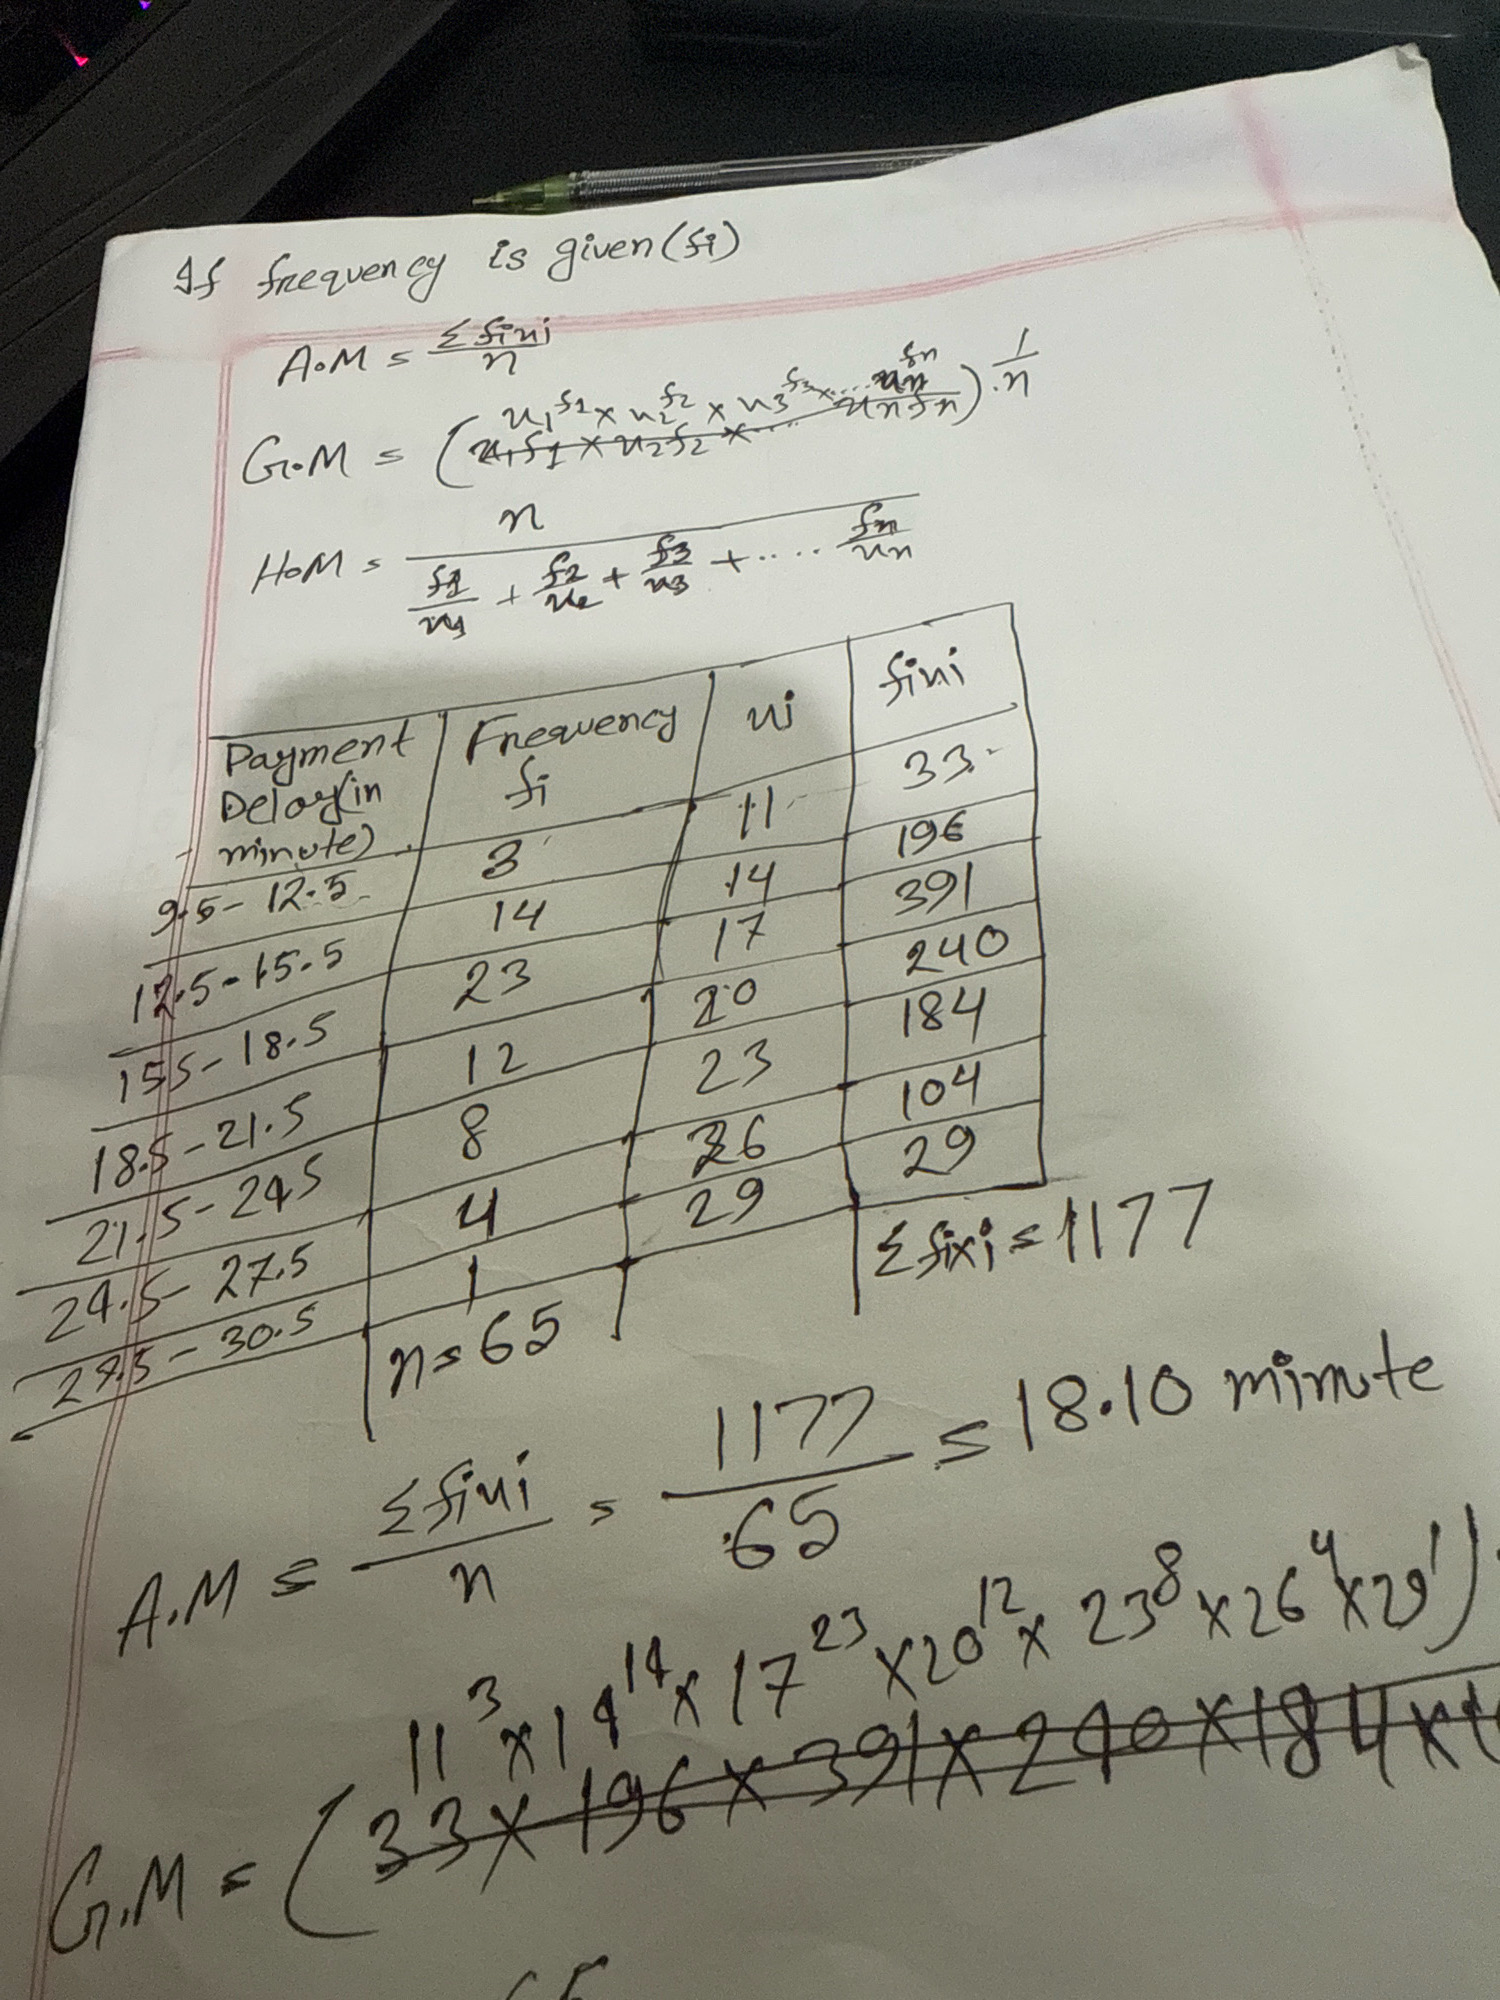 If frequency is given (fi)
A.M = Σfixi / n
G.M = (x1^f1 × x2^f2 × x3^f3 × .... xn^fn)^1/n
H.M = n / (f1/x1 + f2/x2 + f3/x3 + ..... fn/xn)
Payment Delay(in minute) | Frequency fi | xi | fixi
9.5-12.5 | 3 | 11 | 33
12.5-15.5 | 14 | 14 | 196
155-18.5 | 23 | 17 | 391
18.5-21.5 | 12 | 20 | 240
21.5-24.5 | 8 | 23 | 184
24.5-27.5 | 4 | 26 | 104
27.5-30.5 | 1 | 29 | 29
n = 65 | Σfixi = 1177
A.M = Σfixi / n = 1177 / 65 = 18.10 minute
11^3 × 14^14 × 17^23 × 20^12 × 23^8 × 26^4 × 29^1)
G.M = (33 × 196 × 391 × 240 × 184 ×